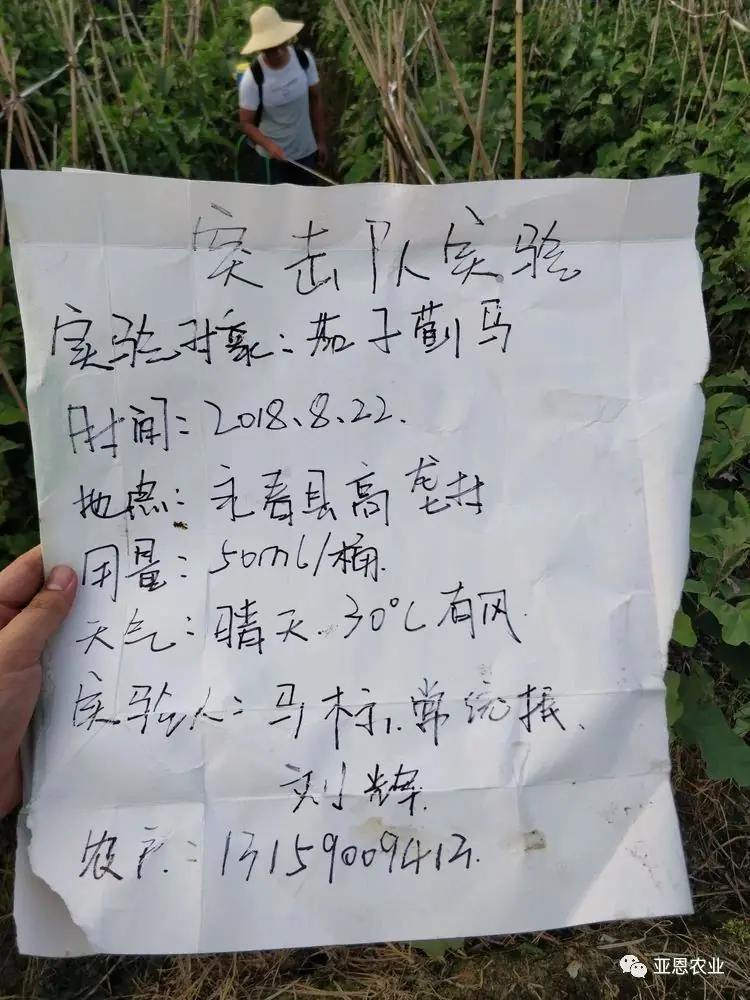 突击队实验
实验对象：茄子蓟马
时间：2018、8、22.
地点：永春县高垄村
用量：50ml/桶.
天气：晴天. 30℃有风.
实验人：马标、常统振、
刘辉.
农户：
亚恩农业